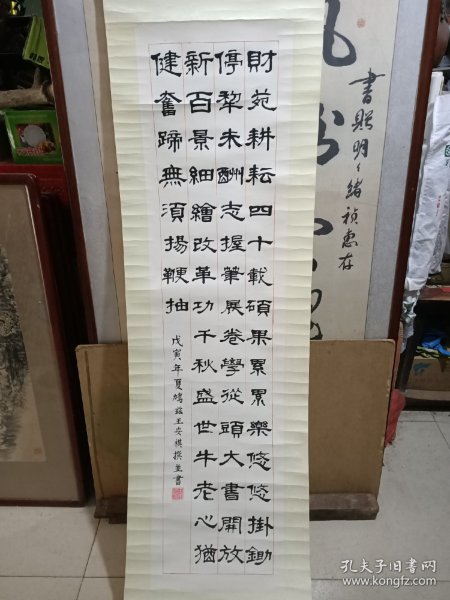 財苑耕耘四十載碩果累累樂悠悠掛鋤
停犂未酬志握筆展卷學從頭大書開放
新百景細繪改革功千秋盛世牛老心猶
健奮蹄無須揚鞭抽
戊寅年夏鳩茲王安祺撰並書
書贈明明緒禎惠存
孔夫子旧书网
www.kongfz.com